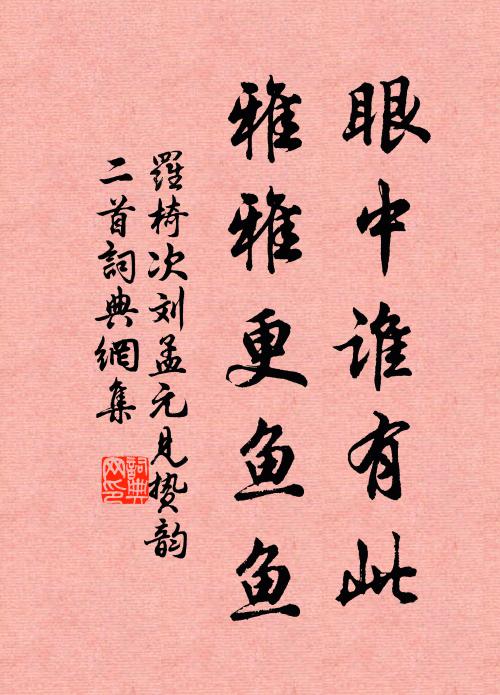 眼中谁有此
雅雅更鱼鱼
羅椅次刘孟元见贽韵
二首詞典網集
詞典
网印